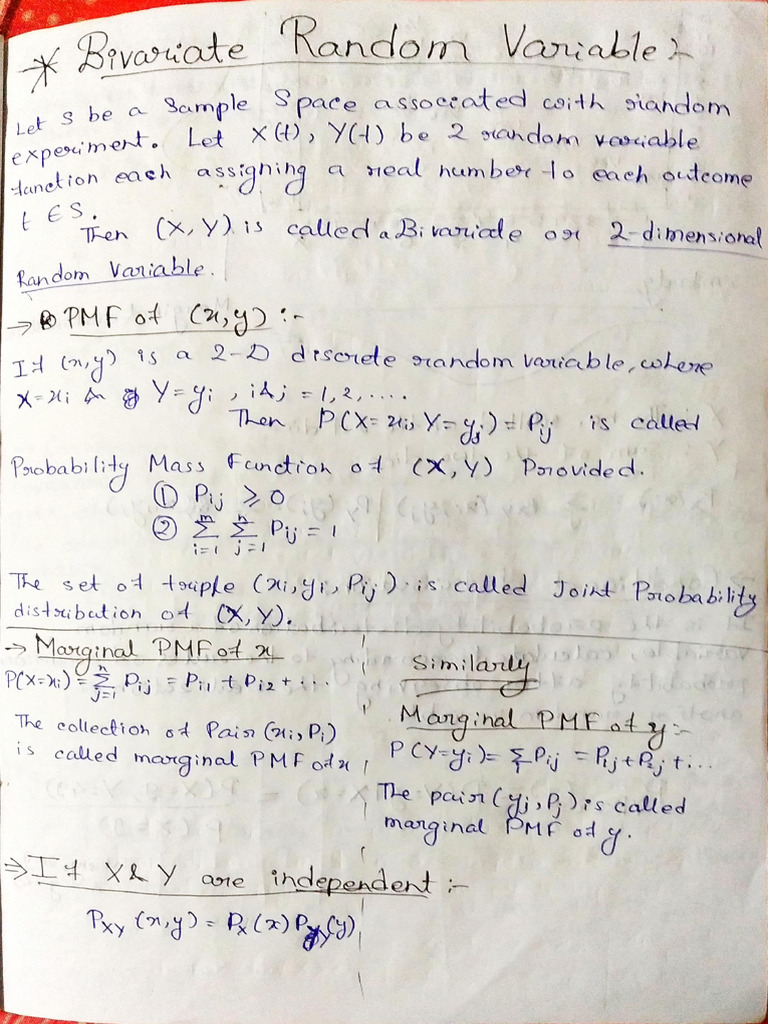 * Bivariate Random Variable :-
Let S be a Sample Space associated with random
experiment. Let X(t), Y(t) be 2 random variable
function each assigning a real number to each outcome
t ∈ S.
Then (X, Y) is called a Bivariate or 2-dimensional
Random Variable.
→ PMF of (x, y) :-
If (x, y) is a 2-D discrete random variable, where
X = xi & Y = yi , i & j = 1, 2, ....
Then P(X = xi, Y = yj) = Pij is called
Probability Mass Function of (X, Y) Provided.
① Pij ⩾ 0
② m∑i=1 n∑j=1 Pij = 1
The set of triple (xi, yi, Pij) is called Joint Probability
distribution of (X, Y).
→ Marginal PMF of x
P(X=xi) = n∑j=1 Pij = Pi1 + Pi2 + ...
The collection of Pair (xi, Pi)
is called marginal PMF of x
Similarly
Marginal PMF of y :-
P(Y=yi) = ∑i Pij = Pij + P2j + ...
The pair (yj, Pj) is called
marginal PMF of y.
⇒ If X & Y are independent :-
PXY (x, y) = Px (x) PY (y)